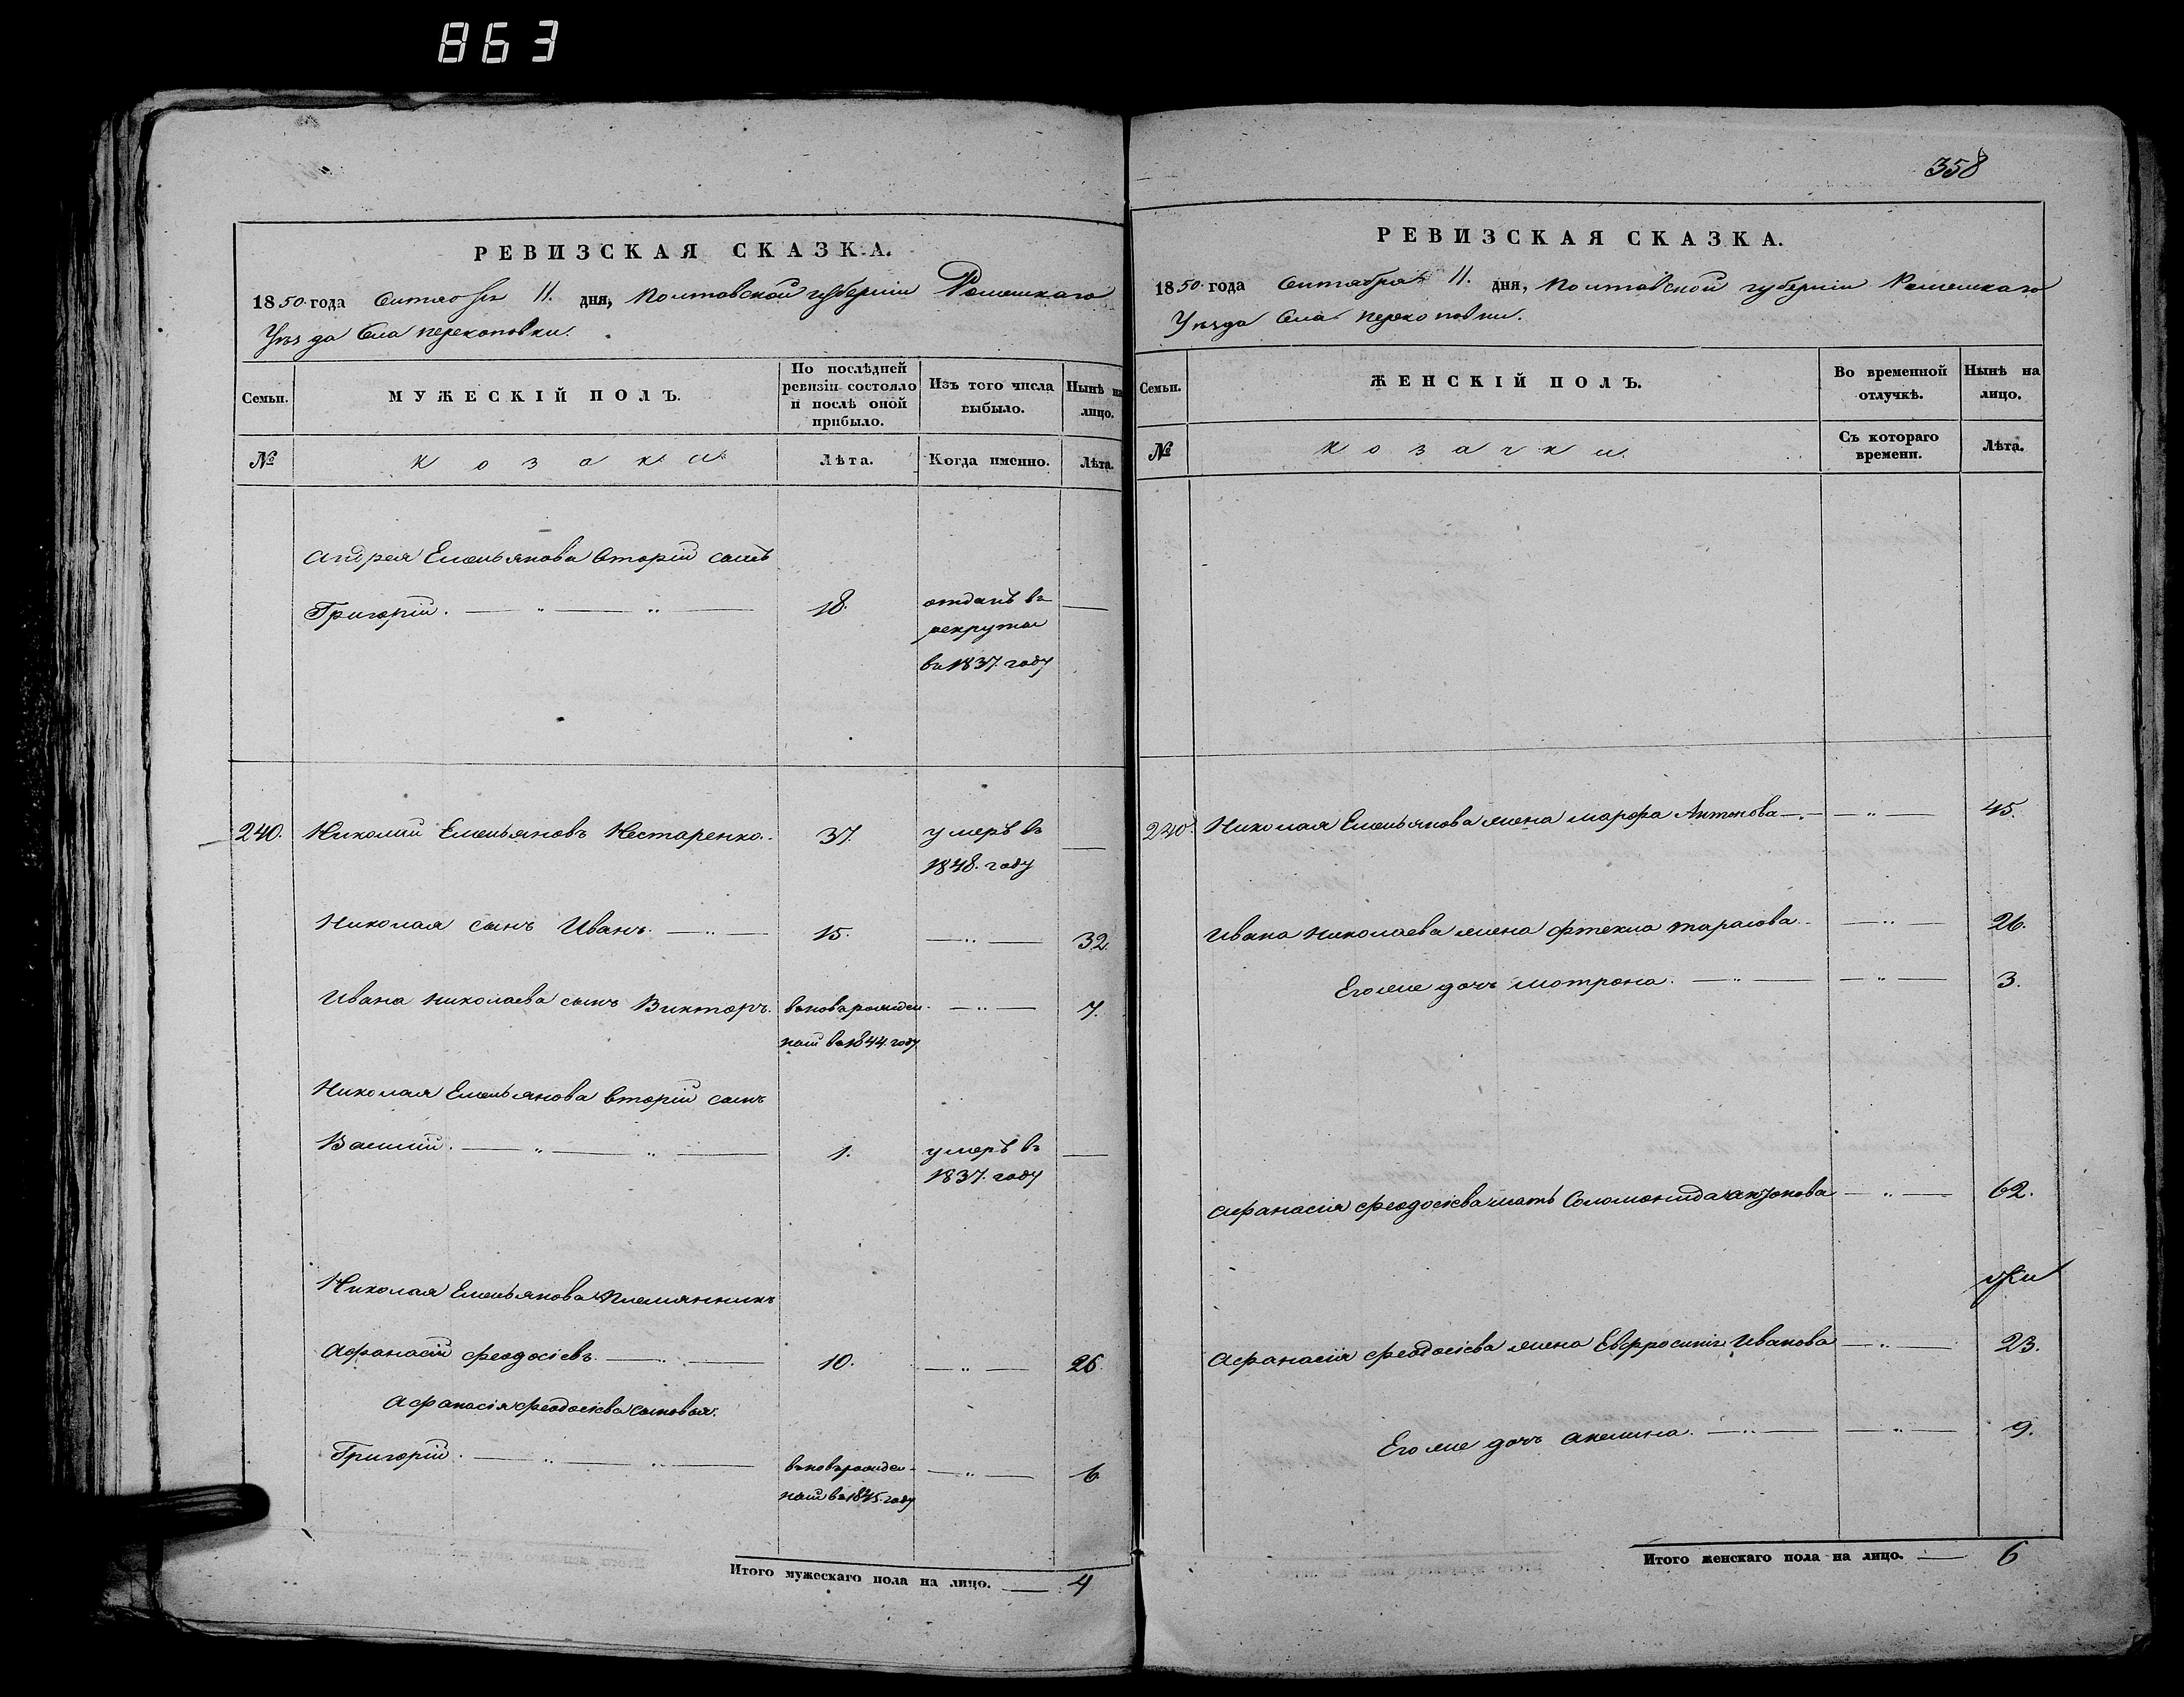 863
РЕВИЗСКАЯ СКАЗКА.
1850 года Сентября 11. дня, Полтавской губерніи Роменскаго
Уѣзда Села Перекоповки.
Семьи.
МУЖЕСКІЙ ПОЛЪ.
По послѣдней
ревизіи состояло
и послѣ оной
прибыло.
Изъ того числа
выбыло.
Нынѣ на
лицо.
№
козаки.
Лѣта.
Когда именно.
Лѣта.
Андрея Емельянова вторій сынъ
Григорій. 18. отданъ въ
рекруты
въ 1837. году
240. Николай Емельяновъ Нестаренко. 37. умеръ въ
1848. году
Николая сынъ Иванъ. 15. 32
Ивана Николаева сынъ Викторъ. вновьрожден- 7.
ный въ 1844. году
Николая Емельянова вторій сынъ
Василій. 1. умеръ въ
1837. году
Николая Емельянова племянникъ
Афанасій Феодосіевъ. 10. 26
Афанасія Феодосіева сыновья.
Григорій. вновьрожден- 6
ный въ 1845. году
Итого мужескаго пола на лицо. 4
358
РЕВИЗСКАЯ СКАЗКА.
1850 года Сентября 11. дня, Полтавской губерніи Роменскаго
Уѣзда Села Перекоповки.
Семьи.
ЖЕНСКІЙ ПОЛЪ.
Во временной
отлучкѣ.
Нынѣ на
лицо.
№
козачки.
Съ котораго
времени.
Лѣта.
240. Николая Емельянова жена Марфа Антонова 45.
Ивана Николаева жена Фтекла Тарасова 26.
Его же дочь Мотрона. 3.
Афанасія Феодосіева мать Соломонида 62.
Афанасія Феодосіева жена Евфросинія Иванова 23.
Его же дочь Акелина. 9.
Итого женскаго пола на лицо. 6